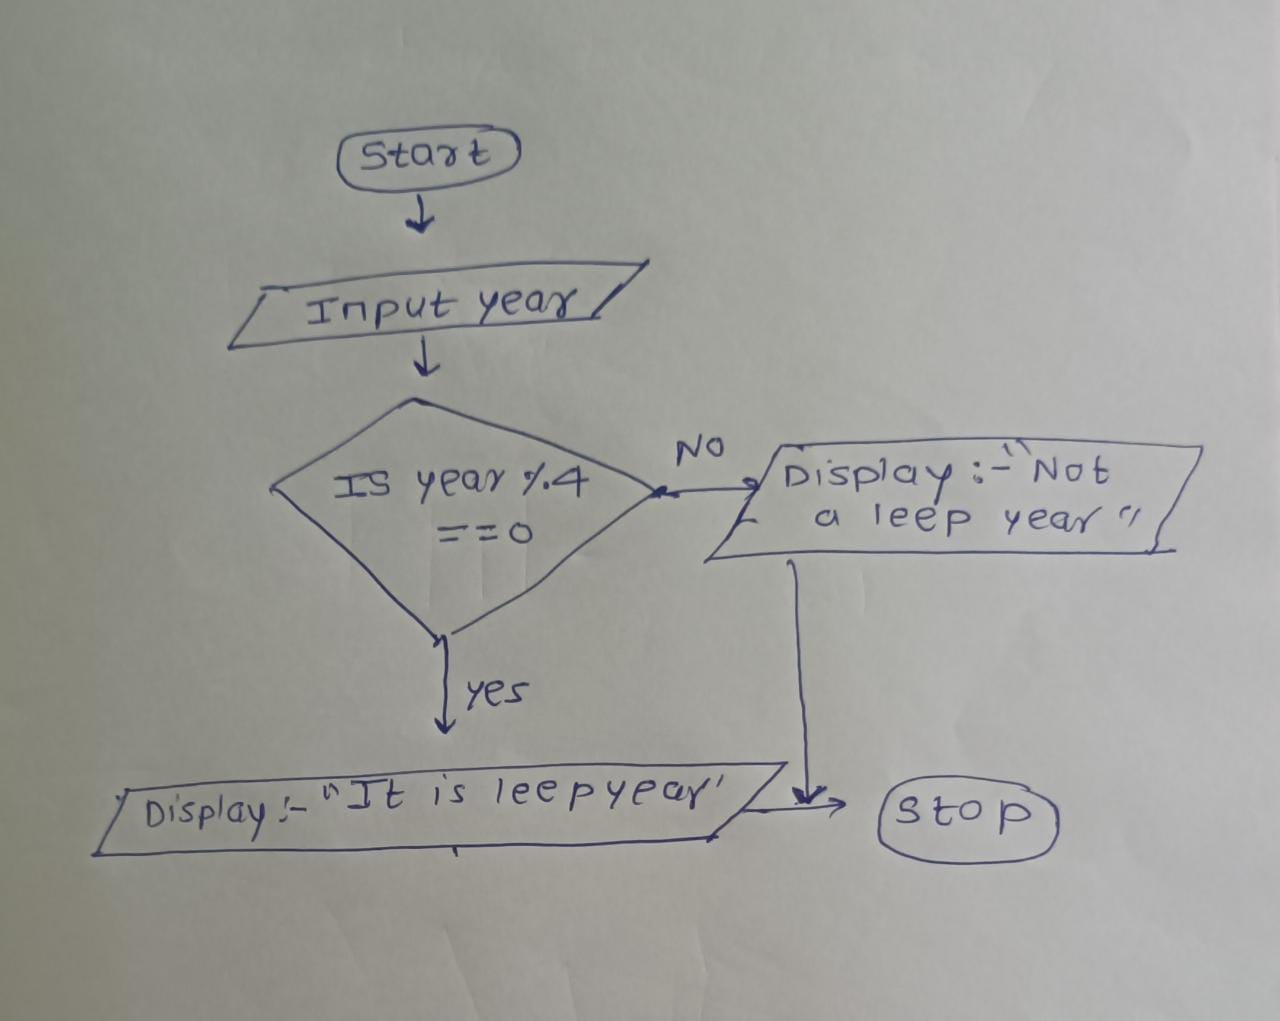 Start
Input year
IS year %.4
==0
NO
Display :- "Not
a leep year "
yes
Display :- "It is leep year'
Stop